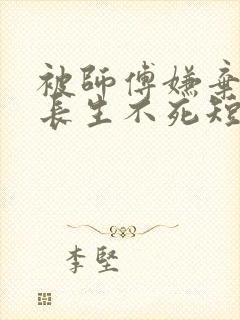 被師傅嫌棄
長生不死短
李堅